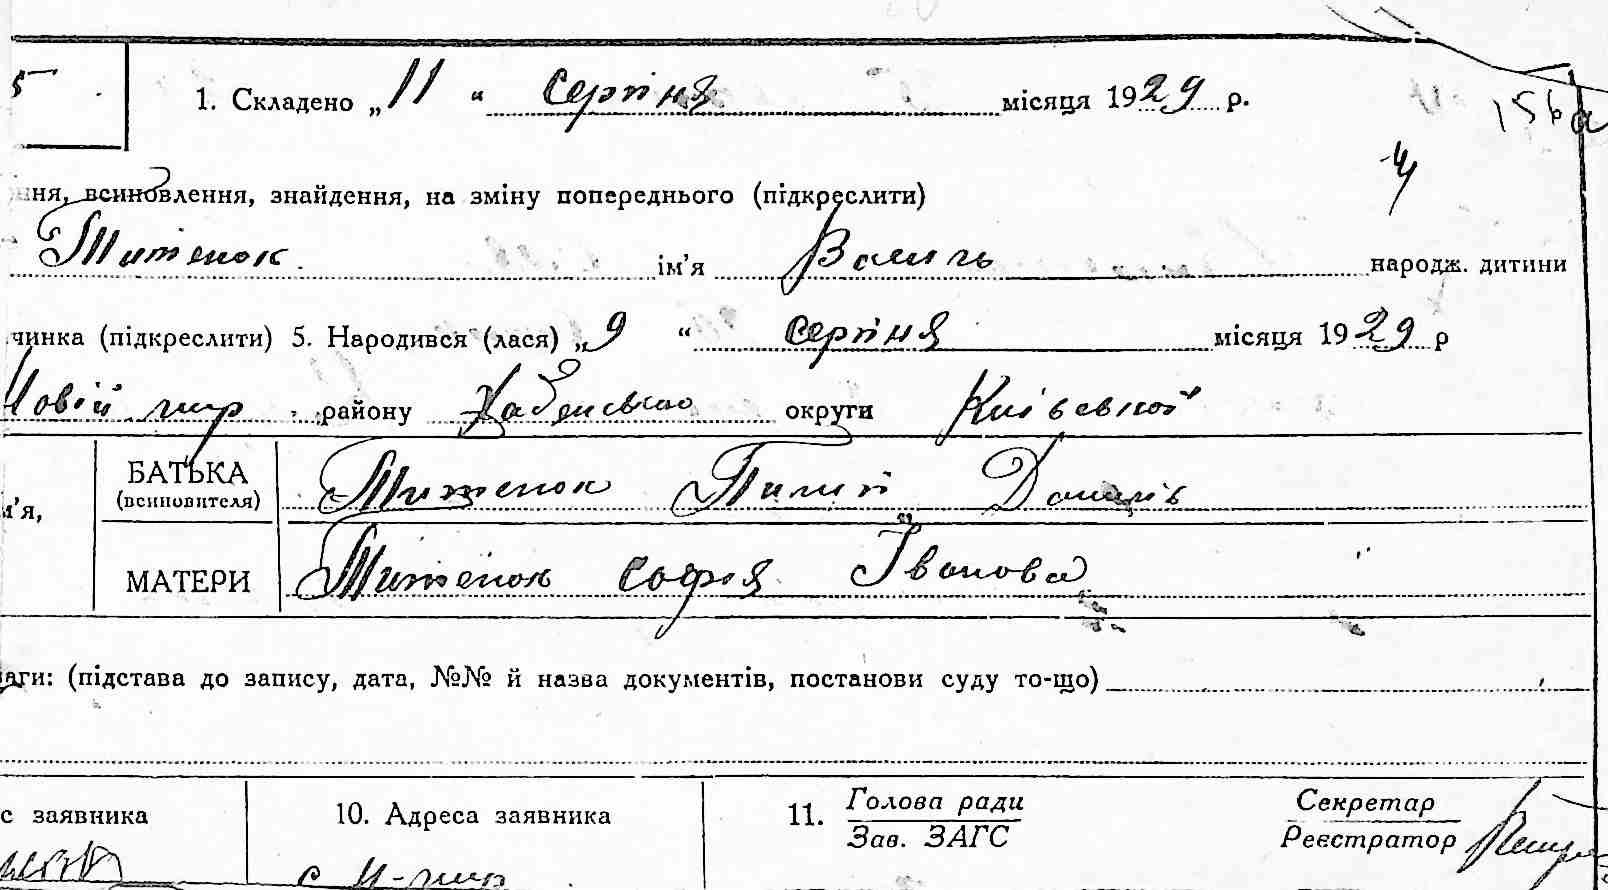 5
1. Складено „11“ серпня місяця 1929 р.
156а
4
ння, всиновлення, знайдення, на зміну попереднього (підкреслити)
Титенок ім’я народж. дитини
чинка (підкреслити) 5. Народився (лася) „9“ серпня місяця 1929 р
Новій мир району Хабенсько округи Київської
БАТЬКА Титенок Пилип Данилів
(всиновителя)
м’я,
МАТЕРИ Титенок Софія Іванова
аги: (підстава до запису, дата, №№ й назва документів, постанови суду то-що)
с заявника 10. Адреса заявника 11. Голова ради Секретар
Зав. ЗАГС Реєстратор
с Н-мир